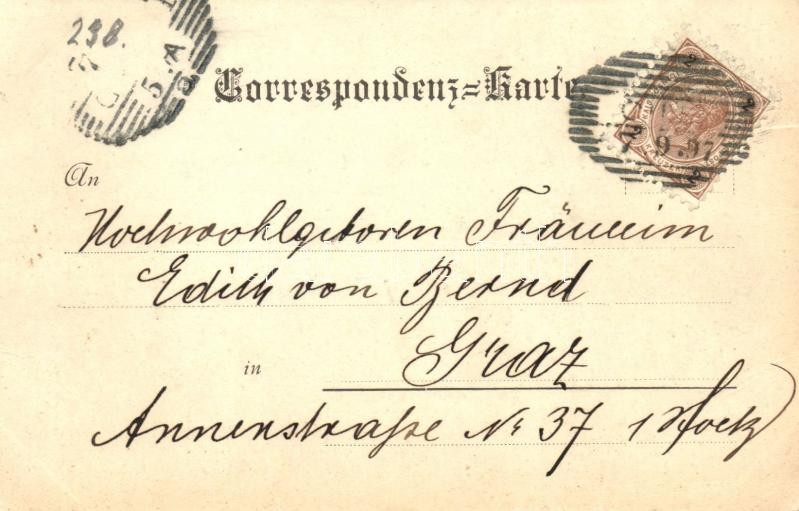 238.
7
5 A
8
Correspondenz-Karte
2 2 2 2
9.97
An
Hochwohlgeboren Fräulein
Edith von Bernd
in Graz
Annenstraße No 37 1 Stock